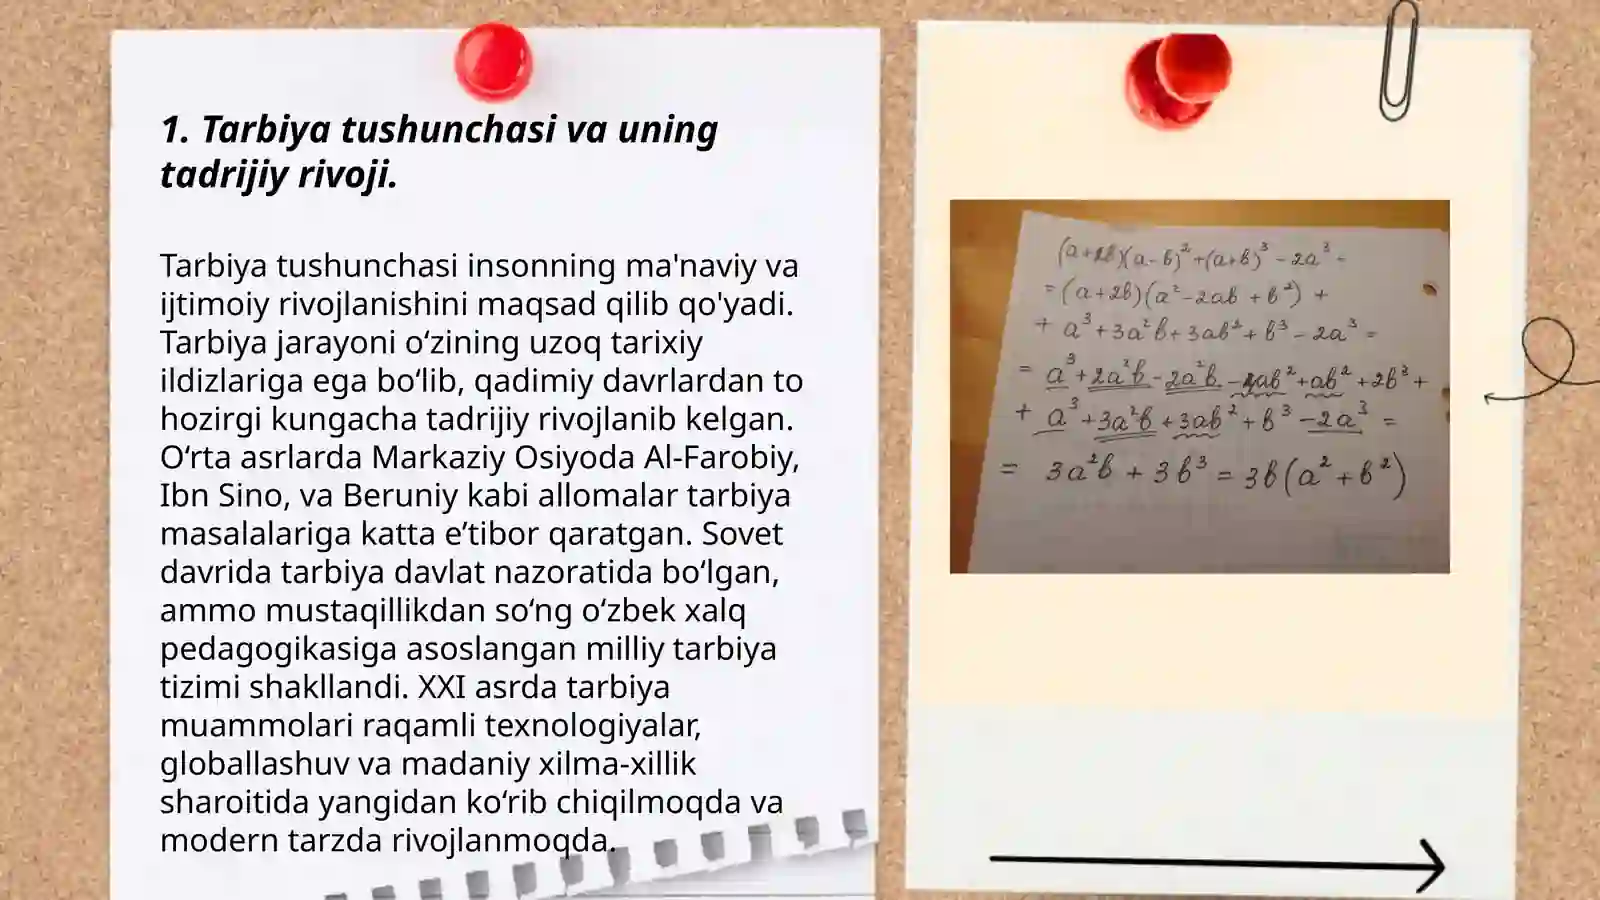 1. Tarbiya tushunchasi va uning
tadrijiy rivoji.
Tarbiya tushunchasi insonning ma'naviy va
ijtimoiy rivojlanishini maqsad qilib qo'yadi.
Tarbiya jarayoni o‘zining uzoq tarixiy
ildizlariga ega bo‘lib, qadimiy davrlardan to
hozirgi kungacha tadrijiy rivojlanib kelgan.
O‘rta asrlarda Markaziy Osiyoda Al-Farobiy,
Ibn Sino, va Beruniy kabi allomalar tarbiya
masalalariga katta e’tibor qaratgan. Sovet
davrida tarbiya davlat nazoratida bo‘lgan,
ammo mustaqillikdan so‘ng o‘zbek xalq
pedagogikasiga asoslangan milliy tarbiya
tizimi shakllandi. XXI asrda tarbiya
muammolari raqamli texnologiyalar,
globallashuv va madaniy xilma-xillik
sharoitida yangidan ko‘rib chiqilmoqda va
modern tarzda rivojlanmoqda.
(a+2b)(a-b)²+(a+b)³-2a³=
=(a+2b)(a²-2ab+b²)+
+a³+3a²b+3ab²+b³-2a³=
=a³+2a²b-2a²b-4ab²+ab²+2b³+
+a³+3a²b+3ab²+b³-2a³=
=3a²b+3b³=3b(a²+b²)